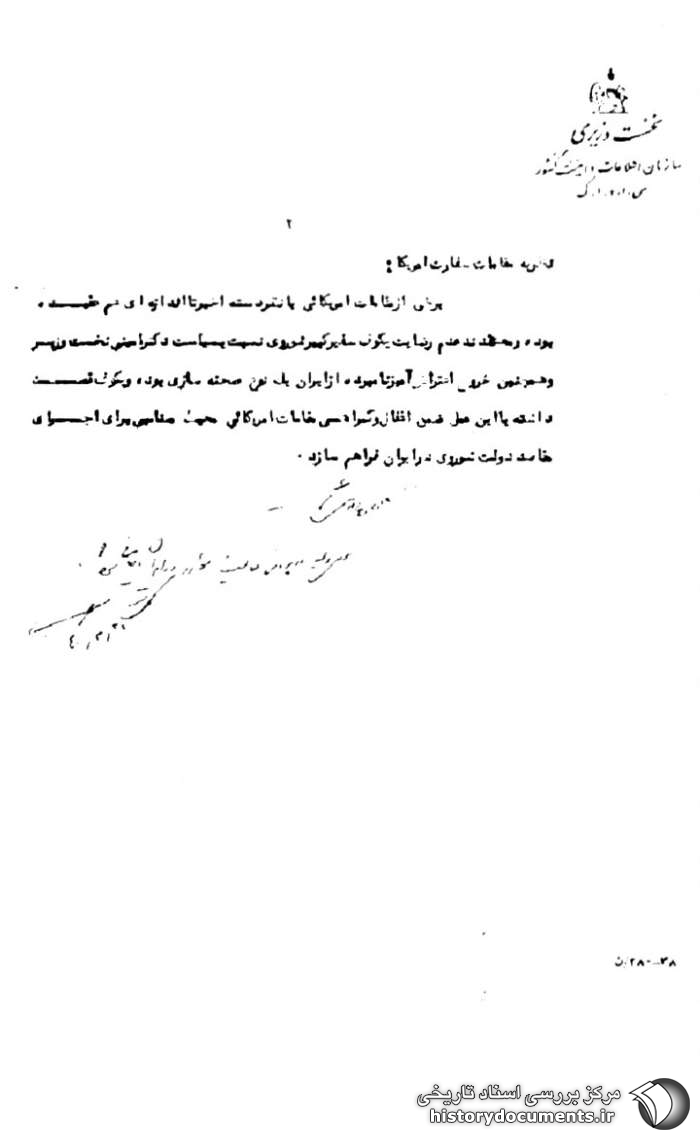 نخست وزیری
سازمان اطلاعات و امنیت کشور
س. ا. و. ا. ک
۲
نظریه مقامات سفارت امریکا :
برخی از مقامات امریکائی با نفر دسته اخیر تا اندازه ای هم عقیـــده
بوده و معتقدند عدم رضایت پگوف سفیر کبیر شوروی نسبت بسیاست دکتر امینی نخست وزیـر
و همچنین خروج اعتراض آمیز نامبرده از ایران یک نوع صحنه سازی بوده و پگوف قصـــد
داشته با این عمل ضمن اغفال و گمراهی مقامات امریکائی محیط مناسبی برای اجـــرای
مقاصد دولت شوروی در ایران فراهم سازد .
۴۰/۳/۳۱
مرکز بررسی اسناد تاریخی
historydocuments.ir